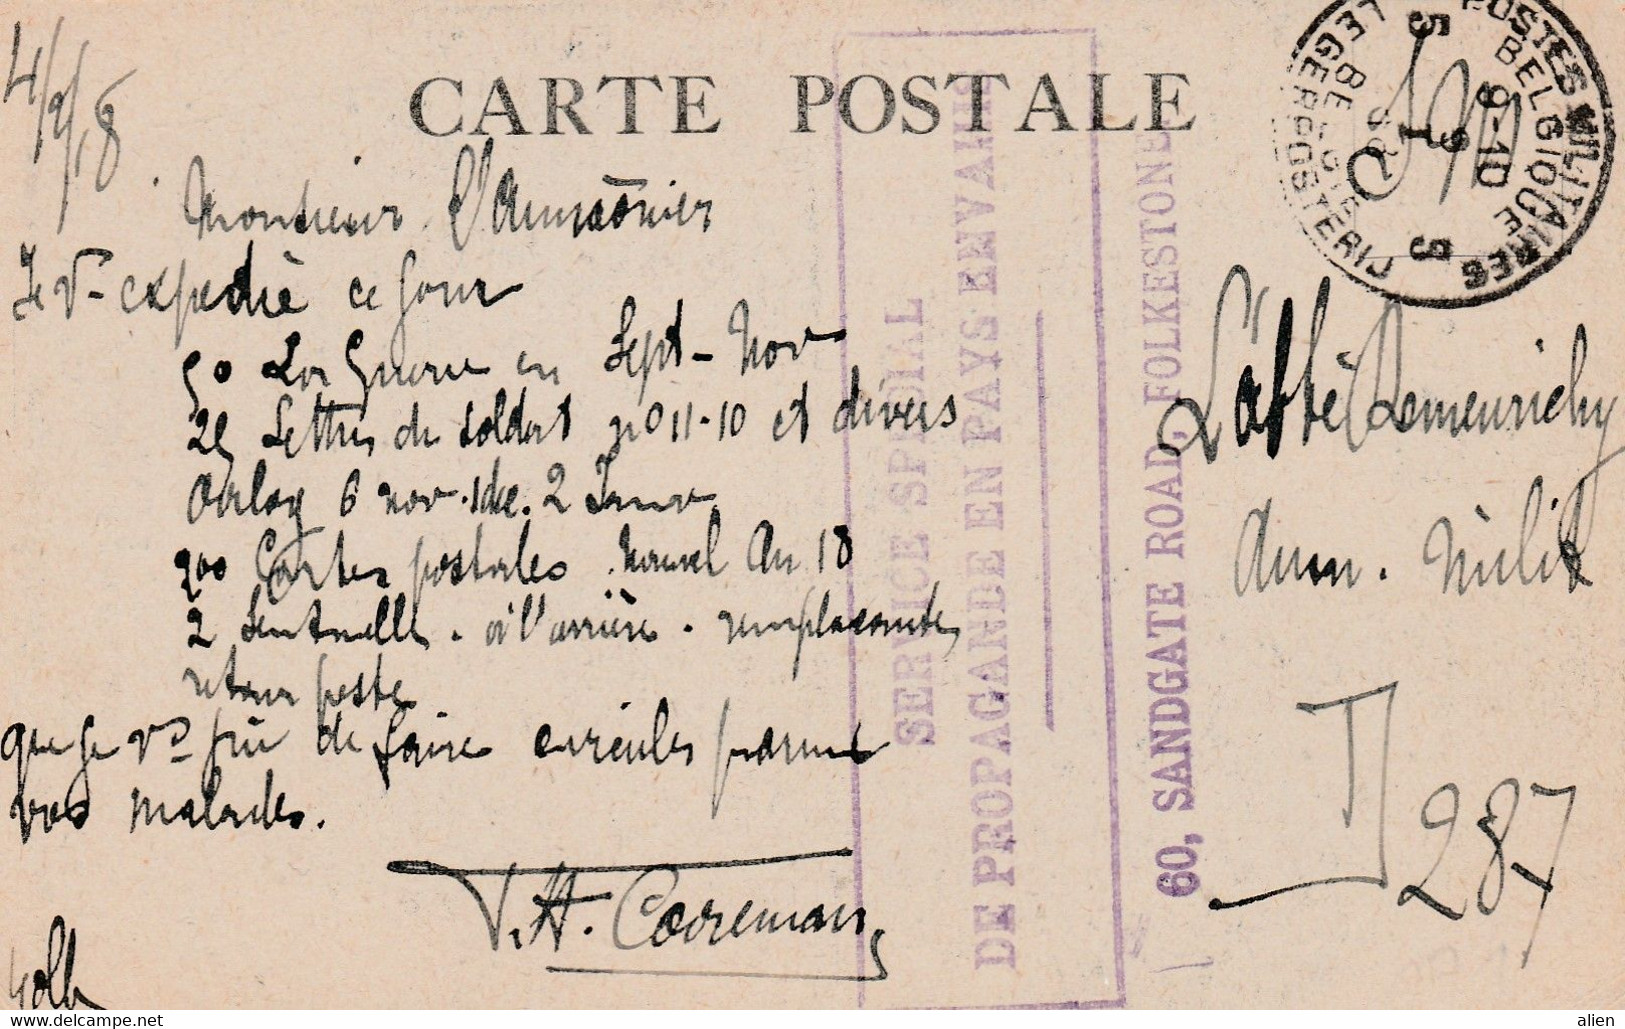 CARTE POSTALE
4/9/18
Monsieur l'Aumônier
Je Vs expédie ce jour
50 La Guerre en Sept - Nov
25 Lettres du soldat no 11-10 et divers
Oorlog 6 nov. 1 dec. 2 Janv
200 Cartes postales. Nouvel An 18
2 Sentinelle. à l'arrière.
retour poste
que je vs prie de faire circuler parmi
vos malades.
V. H. Cooremans
SERVICE SPÉCIAL
DE PROPAGANDE EN PAYS ENVAHIS
60, SANDGATE ROAD, FOLKESTONE
POSTES MILITAIRES
BELGIQUE
LEGERPOSTERIJ
5
9-10
5
L'abbé
Aum. Milit
287
alien